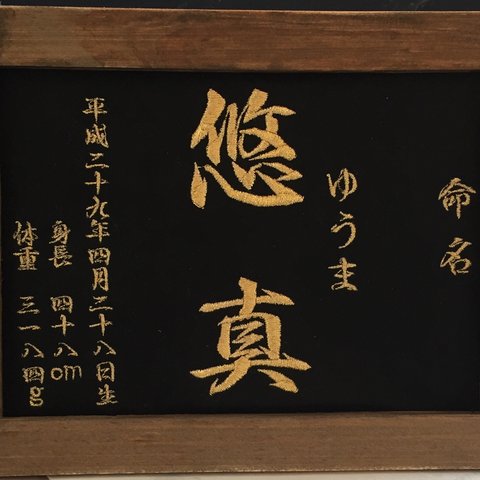 命名
ゆうま
悠真
平成二十九年四月二十八日生
身長 四十八cm
体重 三一八四g